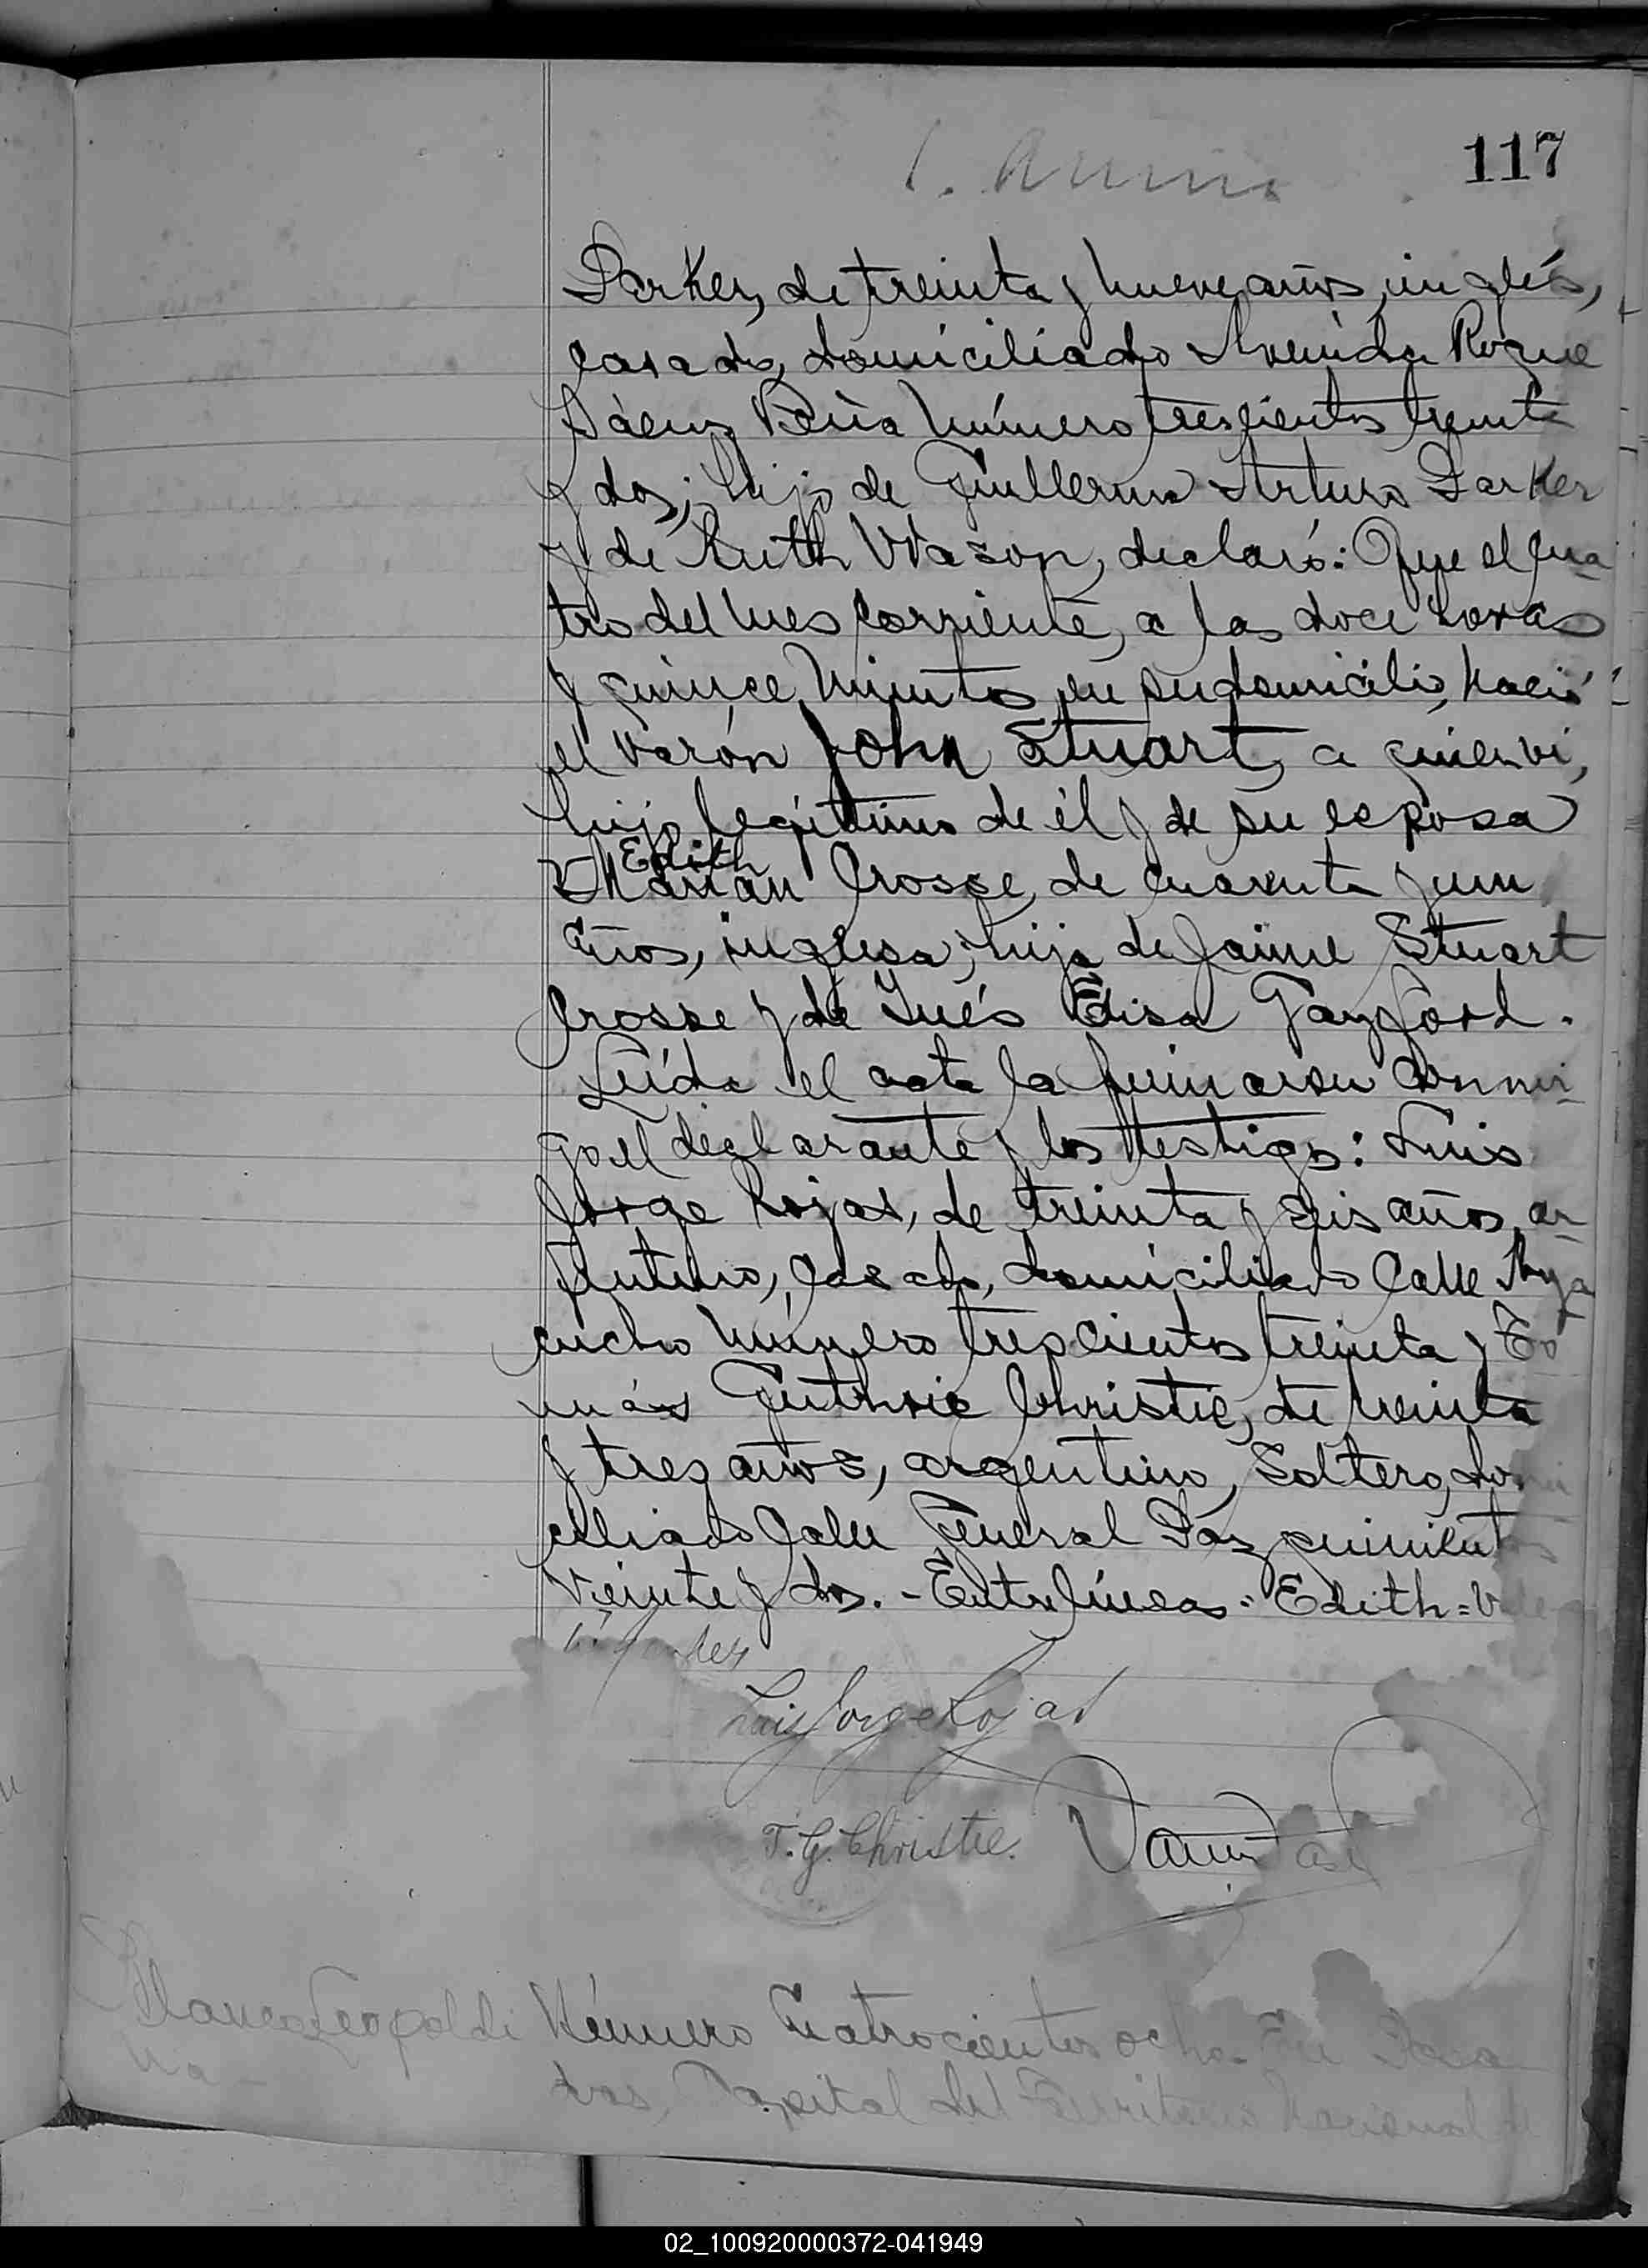 117
Parker, de treinta y nueve años, inglés,
casado, domiciliado Avenida Roque
Sáenz Peña número trescientos treinta
y dos; hijo de Guillermo Arturo Parker
y de Ruth Wason, declaró: Que el cua
tro del mes corriente, a las doce horas
y quince minutos, en su domicilio, nació
el varón John Stuart, a quien vi,
hijo legítimo de él y de su esposa
Edith
Marian Crosse, de cuarenta y un
años, inglesa, hija de Jaime Stuart
Crosse y de Inés Elisa Gayford.
Leída el acta la firmaron conmi-
go el declarante y los testigos: Luis
Jorge Rojas, de treinta y seis años, ar-
gentino, casado, domiciliado Calle Aya
cucho número trescientos treinta y To
más Guthrie Christie, de treinta
y tres años, argentino, soltero, domi
ciliado Calle General Paz quinientos
veinte y dos. - Entrelíneas: Edith = Vale
Luis Jorge Rojas
T. G. Christie.
Blanca Leopoldi
na -
Número Cuatrocientos ocho - En Posa
das, Capital del Territorio Nacional de
02_100920000372-041949